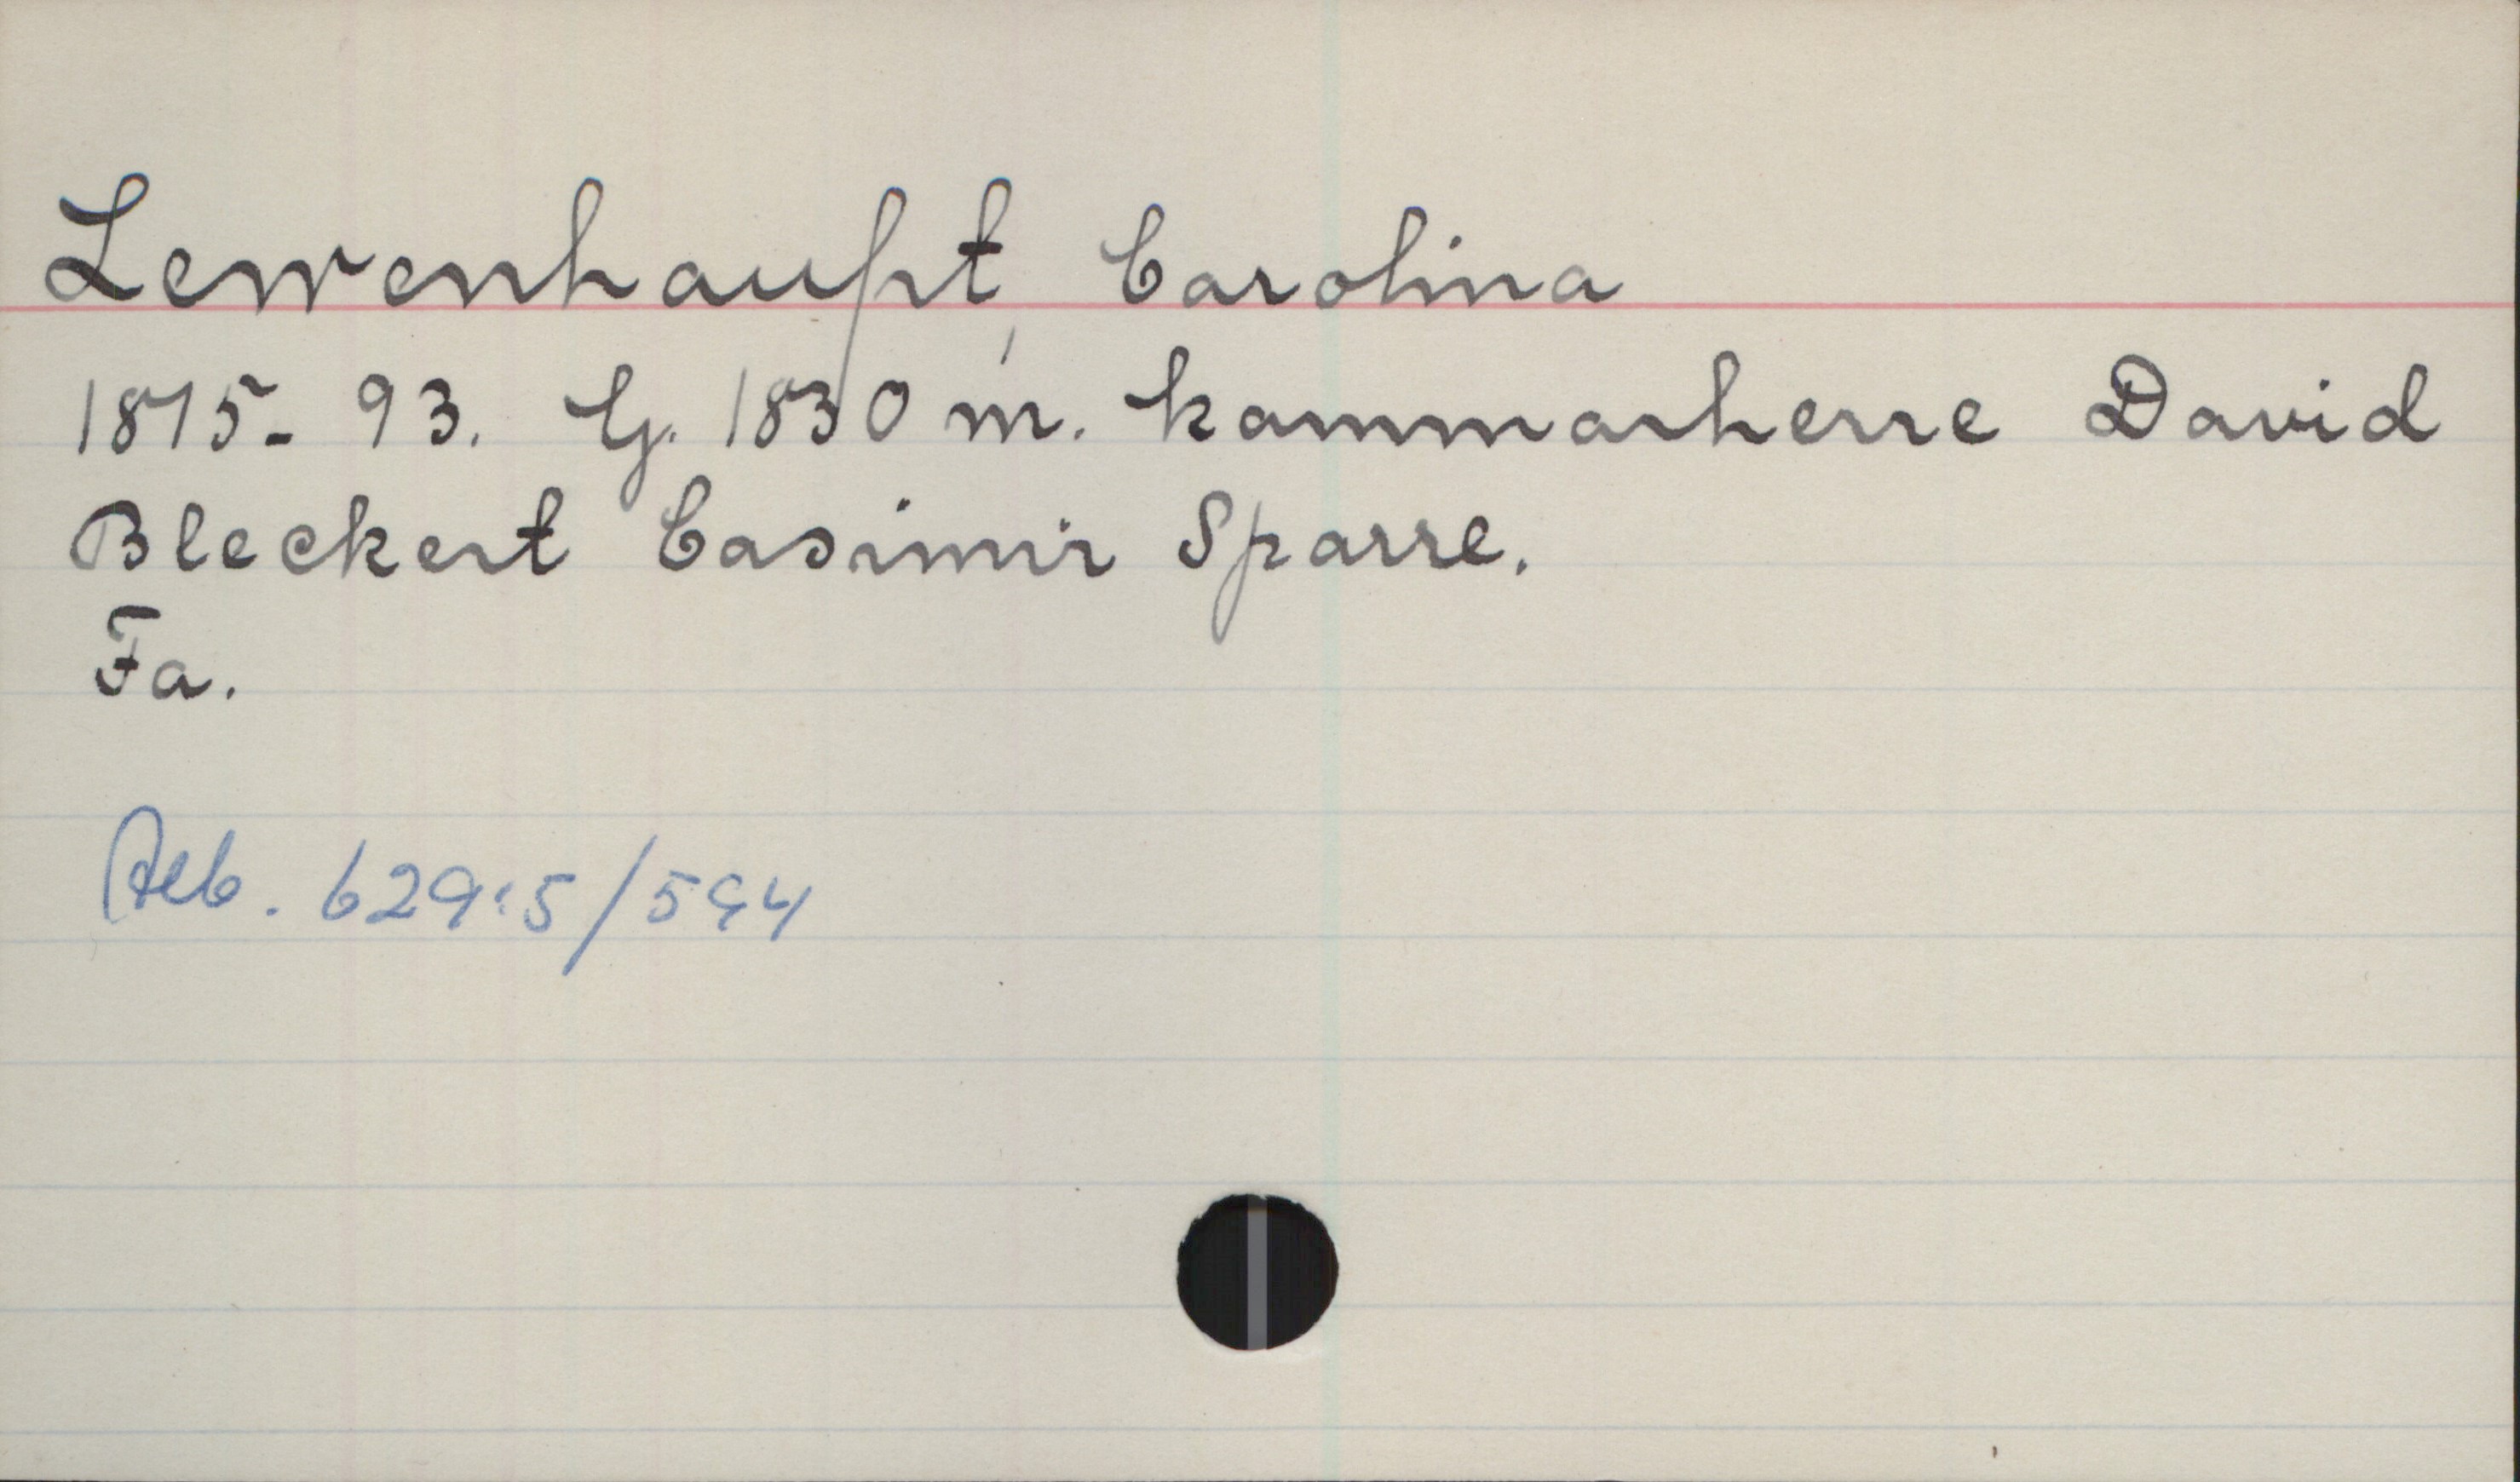 Lewenhaupt, Carolina
1815-93. G. 1830 m. kammarherre David
Bleckert Casimir Sparre.
Fa.
Alb. 629:5/594